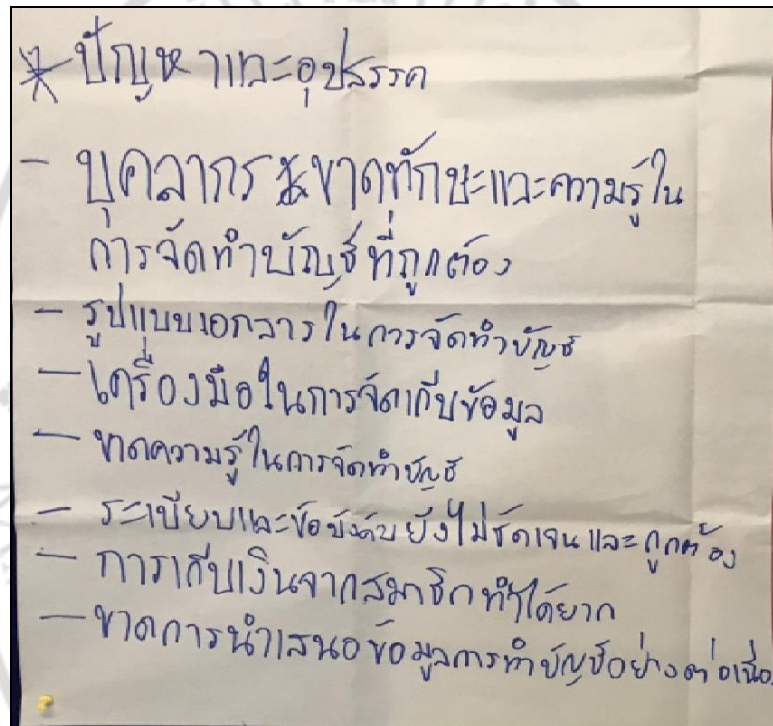 * ปัญหาและอุปสรรค
- บุคลากรขาดทักษะและความรู้ใน
การจัดทำบัญชีที่ถูกต้อง
- รูปแบบเอกสารในการจัดทำบัญชี
- เครื่องมือในการจัดเก็บข้อมูล
- ขาดความรู้ในการจัดทำบัญชี
- ระเบียบและข้อบังคับยังไม่ชัดเจนและถูกต้อง
- การเก็บเงินจากสมาชิกทำได้ยาก
- ขาดการนำเสนอข้อมูลการทำบัญชีอย่างต่อเนื่อ